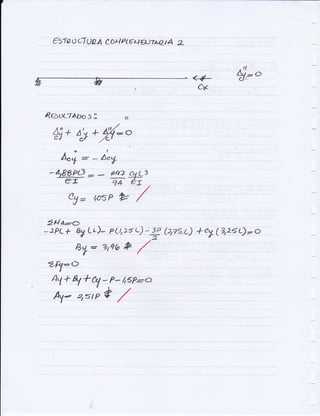 ESTRUCTURA COMPLEMENTARIA 2
Δ''cy = 0
Cx
RESULTADOS:
Δ°cy + Δ'cy + Δ''cy = 0
Δ°cy = - Δ'cy
EI
EI
Cy = 1,05P
ΣMA=0
-2PL + By(L) - P(1,25L) - 3P (2,75L) + Cy(3,25L)=0
By = 3,96
ΣFy=0
Ay + By + Cy - P - 1,5P=0
Ay = 2,51P